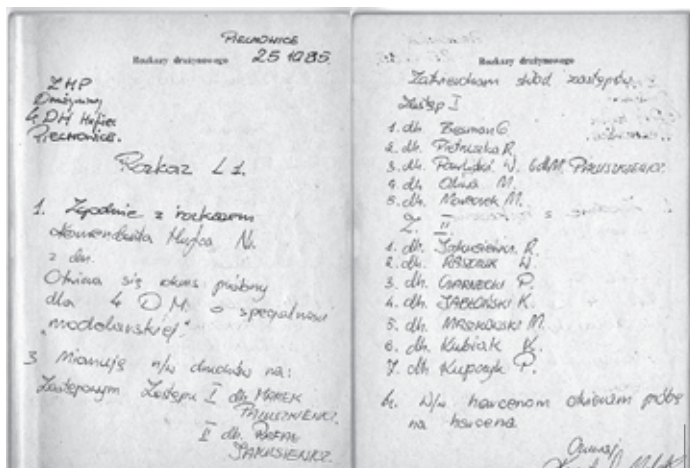 PIECHOWICE
Rozkazy drużynowego 25 10 85.
ZHP
Drużynowy
4 DH Hufiec
PIECHOWICE.
Rozkaz L1.
1. Zgodnie z rozkazem
Komendanta Hufca Nr.
z dn.
Otwiera się okres próbny
dla 4 D M. o specjalności
„modelarskiej"
3 Mianuję n/w druhów na:
Zastępowym Zastępu I dh MAREK
PAŁUSZKIEWICZ.
II dh. RAFAŁ
JAKUSIEWICZ.
Rozkazy drużynowego
Zatwierdzam skład zastępów
Zastęp I
1. dh. G.
2. dh. Pietruszka R.
3. dh. W. 6 dh M. PAŁUSZKIEWICZ.
4. dh Oliwa M.
5. dh. M.
Z. II
1. dh. Jakusiewicz. R.
2. dh. W.
3. dh. CZARNECKI P.
4. dh. JABŁOŃSKI K.
5. dh. MASZKOWSKI M.
6. dh. Kubiak K.
7. dh Kupczyk P.
4. W/w harcerzom otwieram próbę
na harcerza.
Czuwaj